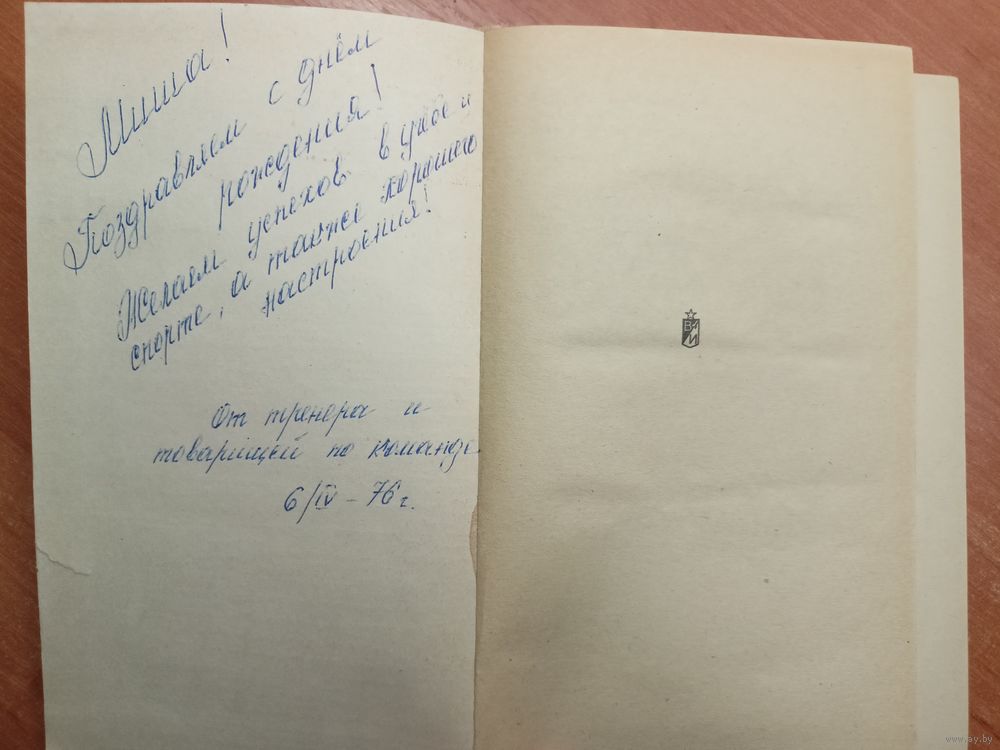 Миша!
Поздравляем с днём
рождения!
Желаем успехов в учёбе и
спорте, а также хорошего
настроения!
От тренера и
товарищей по команде
6/IV – 76 г.
В
И
www.ay.by